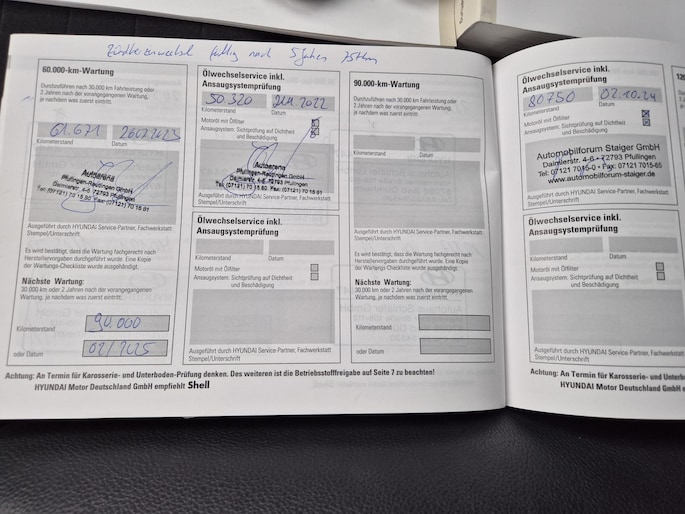 fällig nach 5 Jahren
60.000-km-Wartung
Durchzuführen nach 30.000 km Fahrleistung oder
2 Jahren nach der vorangegangenen Wartung,
je nachdem was zuerst eintritt.
61.671
Kilometerstand Datum
Autoarena
Pfullingen-Reutlingen GmbH
Daimlerstr. 4-6, 72793 Pfullingen
Ausgeführt durch HYUNDAI Service-Partner, Fachwerkstatt
Stempel/Unterschrift
Es wird bestätigt, dass die Wartung fachgerecht nach
Herstellervorgaben durchgeführt wurde. Eine Kopie
der Wartungs-Checkliste wurde ausgehändigt.
Nächste Wartung:
30.000 km oder 2 Jahren nach der vorangegangenen
Wartung, je nachdem was zuerst eintritt.
Kilometerstand 90.000
oder Datum 02/2025
Ölwechselservice inkl.
Ansaugsystemprüfung
50.320
Kilometerstand Datum
Motoröl mit Ölfilter
Ansaugsystem: Sichtprüfung auf Dichtheit
und Beschädigung
Autoarena
Pfullingen-Reutlingen GmbH
Daimlerstr. 4-6, 72793 Pfullingen
Ausgeführt durch HYUNDAI Service-Partner, Fachwerkstatt
Stempel/Unterschrift
Ölwechselservice inkl.
Ansaugsystemprüfung
Kilometerstand Datum
Motoröl mit Ölfilter
Ansaugsystem: Sichtprüfung auf Dichtheit
und Beschädigung
Ausgeführt durch HYUNDAI Service-Partner, Fachwerkstatt
Stempel/Unterschrift
90.000-km-Wartung
Durchzuführen nach 30.000 km Fahrleistung oder
2 Jahren nach der vorangegangenen Wartung,
je nachdem was zuerst eintritt.
Kilometerstand Datum
Ausgeführt durch HYUNDAI Service-Partner, Fachwerkstatt
Stempel/Unterschrift
Es wird bestätigt, dass die Wartung fachgerecht nach
Herstellervorgaben durchgeführt wurde. Eine Kopie
der Wartungs-Checkliste wurde ausgehändigt.
Nächste Wartung:
30.000 km oder 2 Jahren nach der vorangegangenen
Wartung, je nachdem was zuerst eintritt.
Kilometerstand
oder Datum
Achtung: An Termin für Karosserie- und Unterboden-Prüfung denken. Des weiteren ist die Betriebsstofffreigabe auf Seite 7 zu beachten!
HYUNDAI Motor Deutschland GmbH empfiehlt Shell
Ölwechselservice inkl.
Ansaugsystemprüfung
80750 02.10.24
Kilometerstand Datum
Motoröl mit Ölfilter
Ansaugsystem: Sichtprüfung auf Dichtheit
und Beschädigung
Automobilforum Staiger GmbH
Daimlerstr. 4-6 • 72793 Pfullingen
Tel: 07121 7015-0 • Fax: 07121 7015-65
www.automobilforum-staiger.de
Ausgeführt durch HYUNDAI Service-Partner, Fachwerkstatt
Stempel/Unterschrift
Ölwechselservice inkl.
Ansaugsystemprüfung
Kilometerstand Datum
Motoröl mit Ölfilter
Ansaugsystem: Sichtprüfung auf Dichtheit
und Beschädigung
Ausgeführt durch HYUNDAI Service-Partner, Fachwerkstatt
Stempel/Unterschrift
Achtung: An Termin für Karosserie- und Unterbo
HYUNDAI Motor Deutschland GmbH e